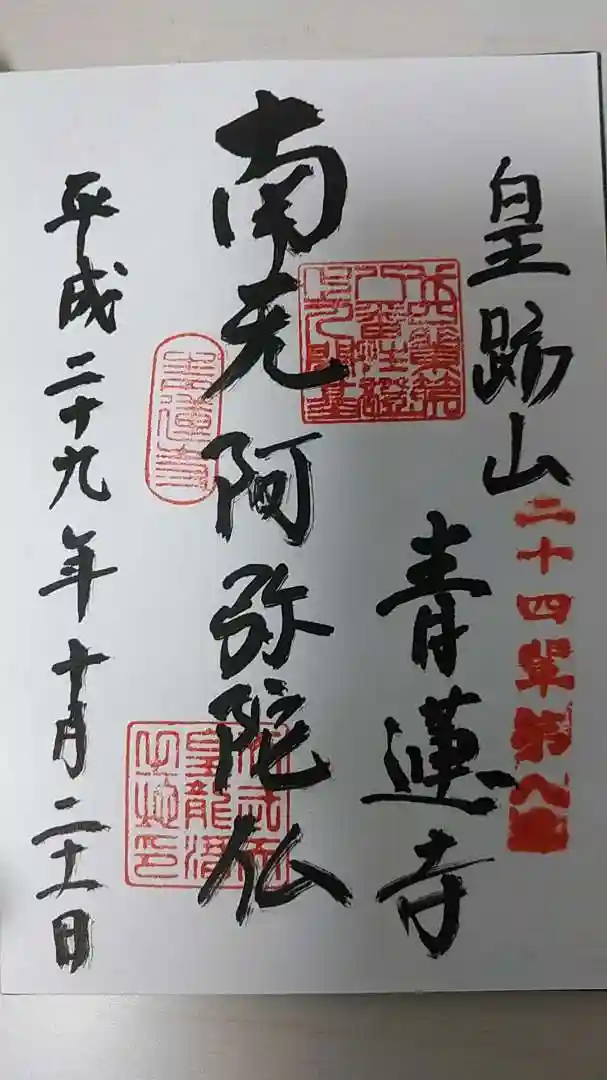 皇跡山
二十四輩第八番
青蓮寺
南无阿弥陀仏
青蓮寺
平成二十九年十月二十一日